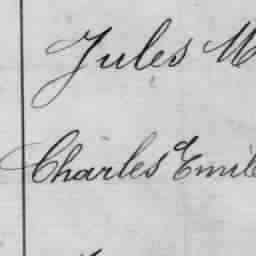 Jules M
Charles Emile